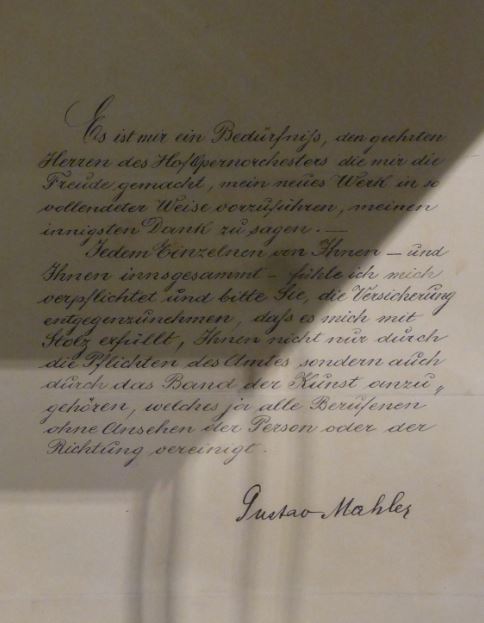 Es ist mir ein Bedürfniß, den geehrten
Herren des Hof Opernorchesters die mir die
Freude gemacht, mein neues Werk in so
vollendeter Weise vorzuführen, meinen
innigsten Dank zu sagen. —
Jedem Einzelnen von Ihnen – und
Ihnen innsgesammt – fühle ich mich
verpflichtet und bitte Sie, die Versicherung
entgegenzunehmen, daß es mich mit
Stolz erfüllt, Ihnen nicht nur durch
die Pflichten des Amtes sondern auch
durch das Band der Kunst anzu„
gehören, welches ja alle Berufenen
ohne Ansehen der Person oder der
Richtung vereinigt.
Gustav Mahler